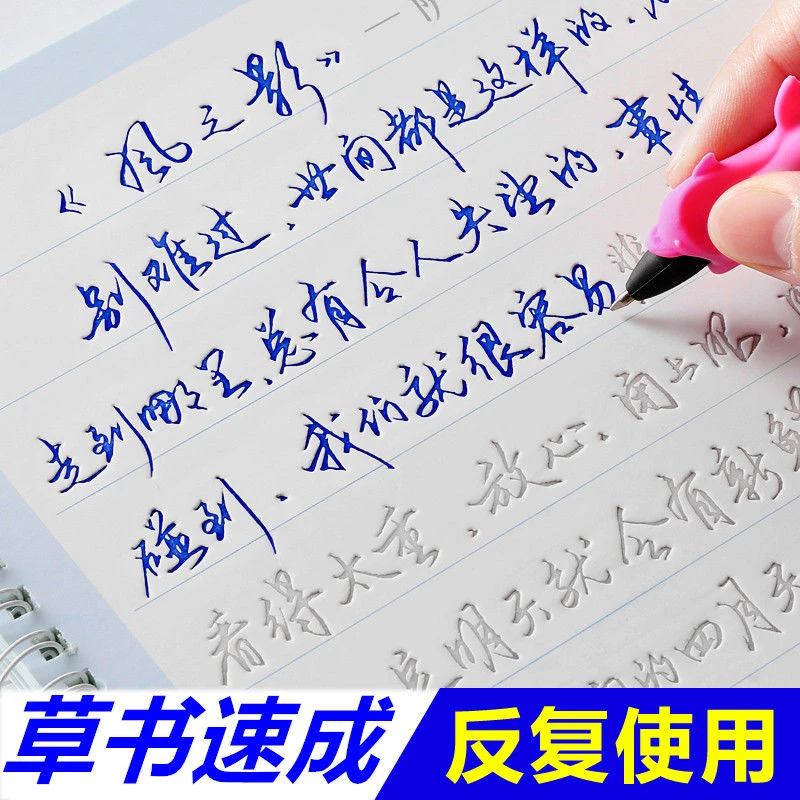 《风之影》一
别难过、世间都是这样的、
走到哪里、总有令人失望的、事情
碰到、我们就很容易
看得太重、放心、闭上眼、
明天就会有新
的四月天
草书速成
反复使用